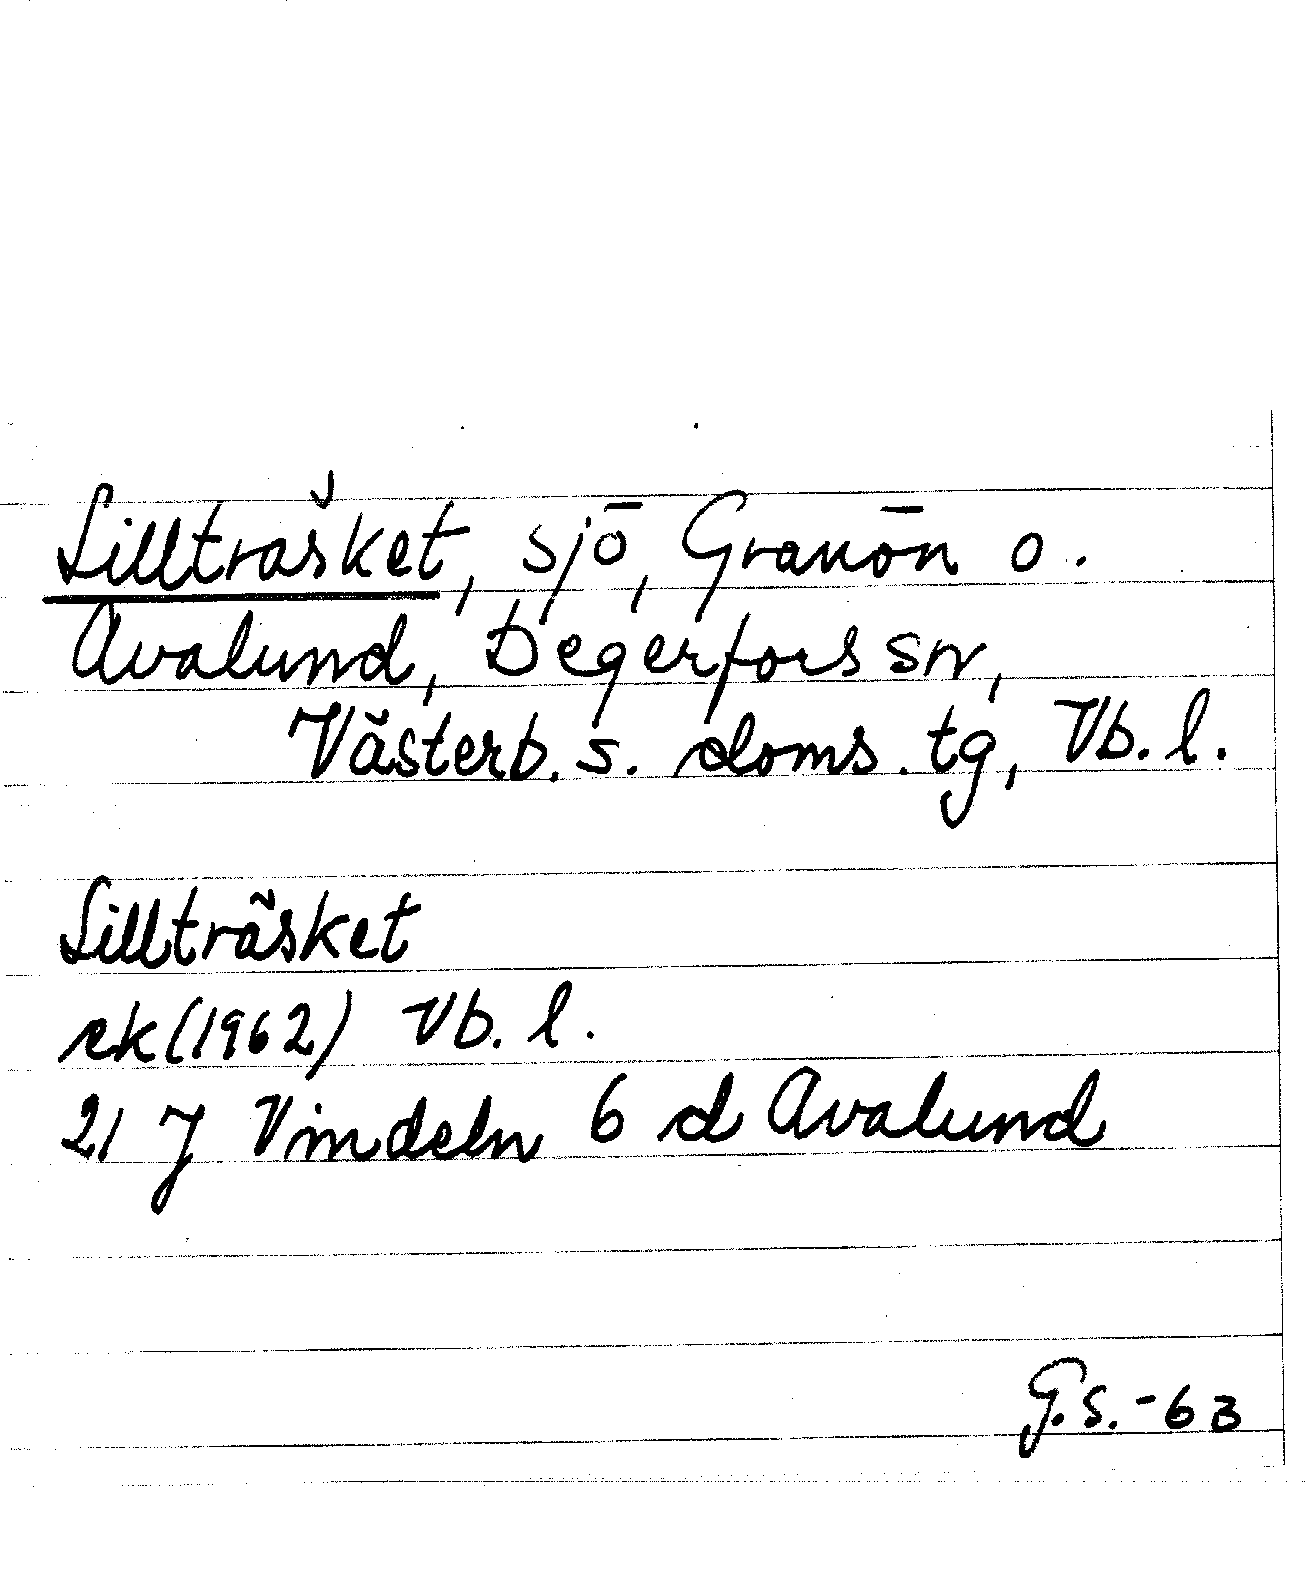 Lillträsket, sjö, Granön o.
Avalund, Degerfors sn,
Västerb. s. doms. tg, Vb. l.
Lillträsket
ek (1962) Vb. l.
21 J Vindeln 6 d Avalund
G.S. -63